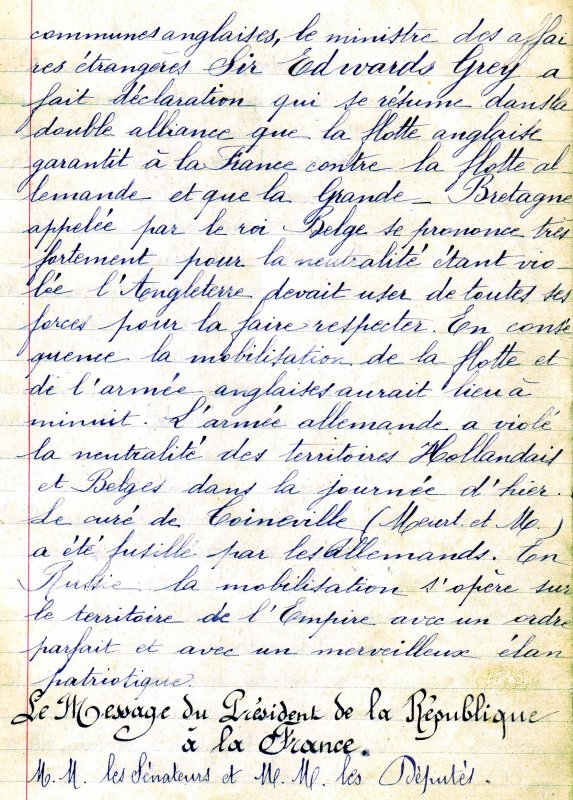 communes anglaises, le ministre des affai
res étrangères Sir Edwards Grey a
fait déclaration qui se résume dans la
double alliance que la flotte anglaise
garantit à la France contre la flotte al
lemande et que la Grande-Bretagne
appelée par le roi Belge se prononce très
fortement pour la neutralité étant vio-
lée l'Angleterre devait user de toutes ses
forces pour la faire respecter. En consé
quence la mobilisation de la flotte et
de l'armée anglaises aurait lieu à
minuit. L'armée allemande a violé
la neutralité des territoires Hollandais
et Belges dans la journée d'hier.
Le curé de Coineville (Meurt. et M.)
a été fusillé par les allemands. En
Russie la mobilisation s'opère sur
le territoire de l'Empire avec un ordre
parfait et avec un merveilleux élan
patriotique.
Le Message du Président de la République
à la France.
M. M. les Sénateurs et M. M. les Députés.